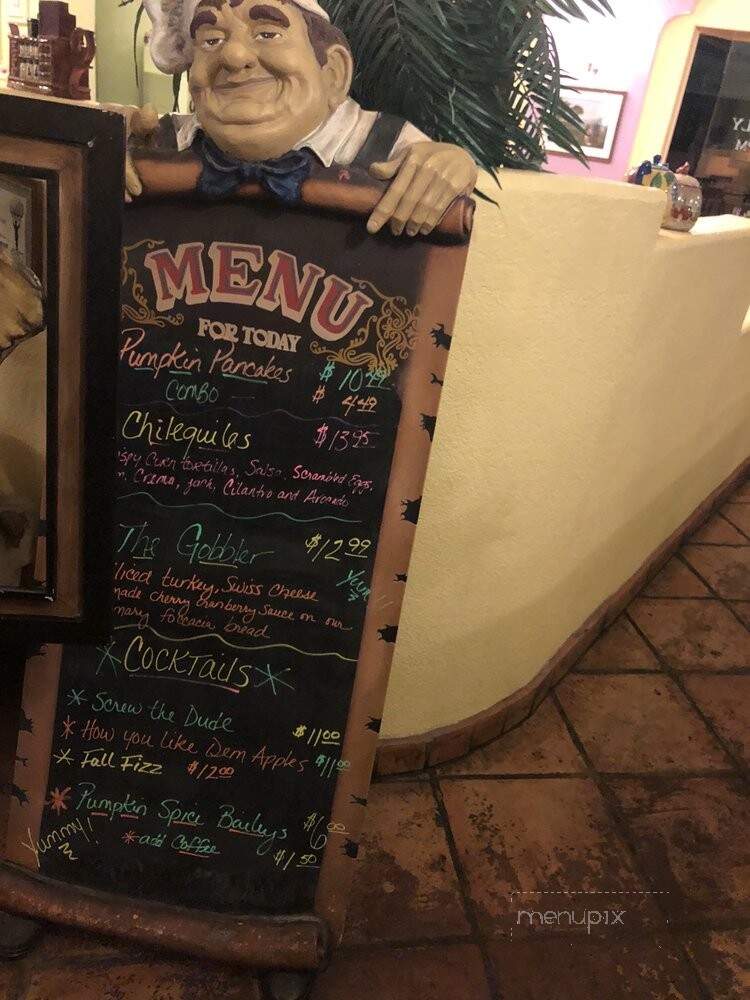 MENU
FOR TODAY
Pumpkin Pancakes $10.49
Combo - $4.49
Chilequiles $13.95
spy Corn tortillas, Salsa, Scrambled Eggs,
n, Crema, jack, Cilantro and Avocado
The Gobbler $12.99
liced turkey, Swiss Cheese Yum!!
made cherry Cranberry Sauce on our
mary foccacia bread
Cocktails
* Screw the Dude $11.00
* How you like Dem Apples $11.00
* Fall Fizz $12.00
* Pumpkin Spice Baileys $6.00
Yummy! * add Coffee $1.50
LY
PM
menupix